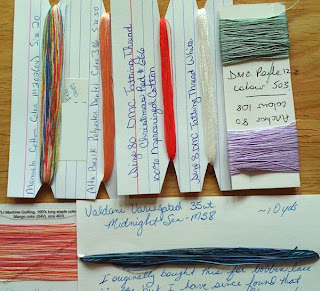 Manuela Cotton Color M2(2020) Size 20
Alta Basik Polyester Daytel Color 336 Size 50
Size 80 DMC Tatting Thread
Christmas Red & Gold
100% Mercerized Cotton
Size 8 DMC Tatting Thread White
DMC Perle 12
Colour 503
Colour 108
Anchor 80
Machine Quilting, 100% long staple cotton
Mango
Valdani Variegated 35wt
Midnight Sea - M58
~10yds
I originally bought this for bobbin lace
but I have since found that